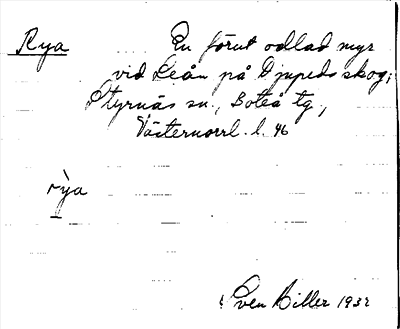 Rya En förut odlad myr
vid Leån på Djupedsskog;
Styrnäs sn., Boteå tg.,
Västernorrl. l. 46
rỳa
Sven Hiller 1932